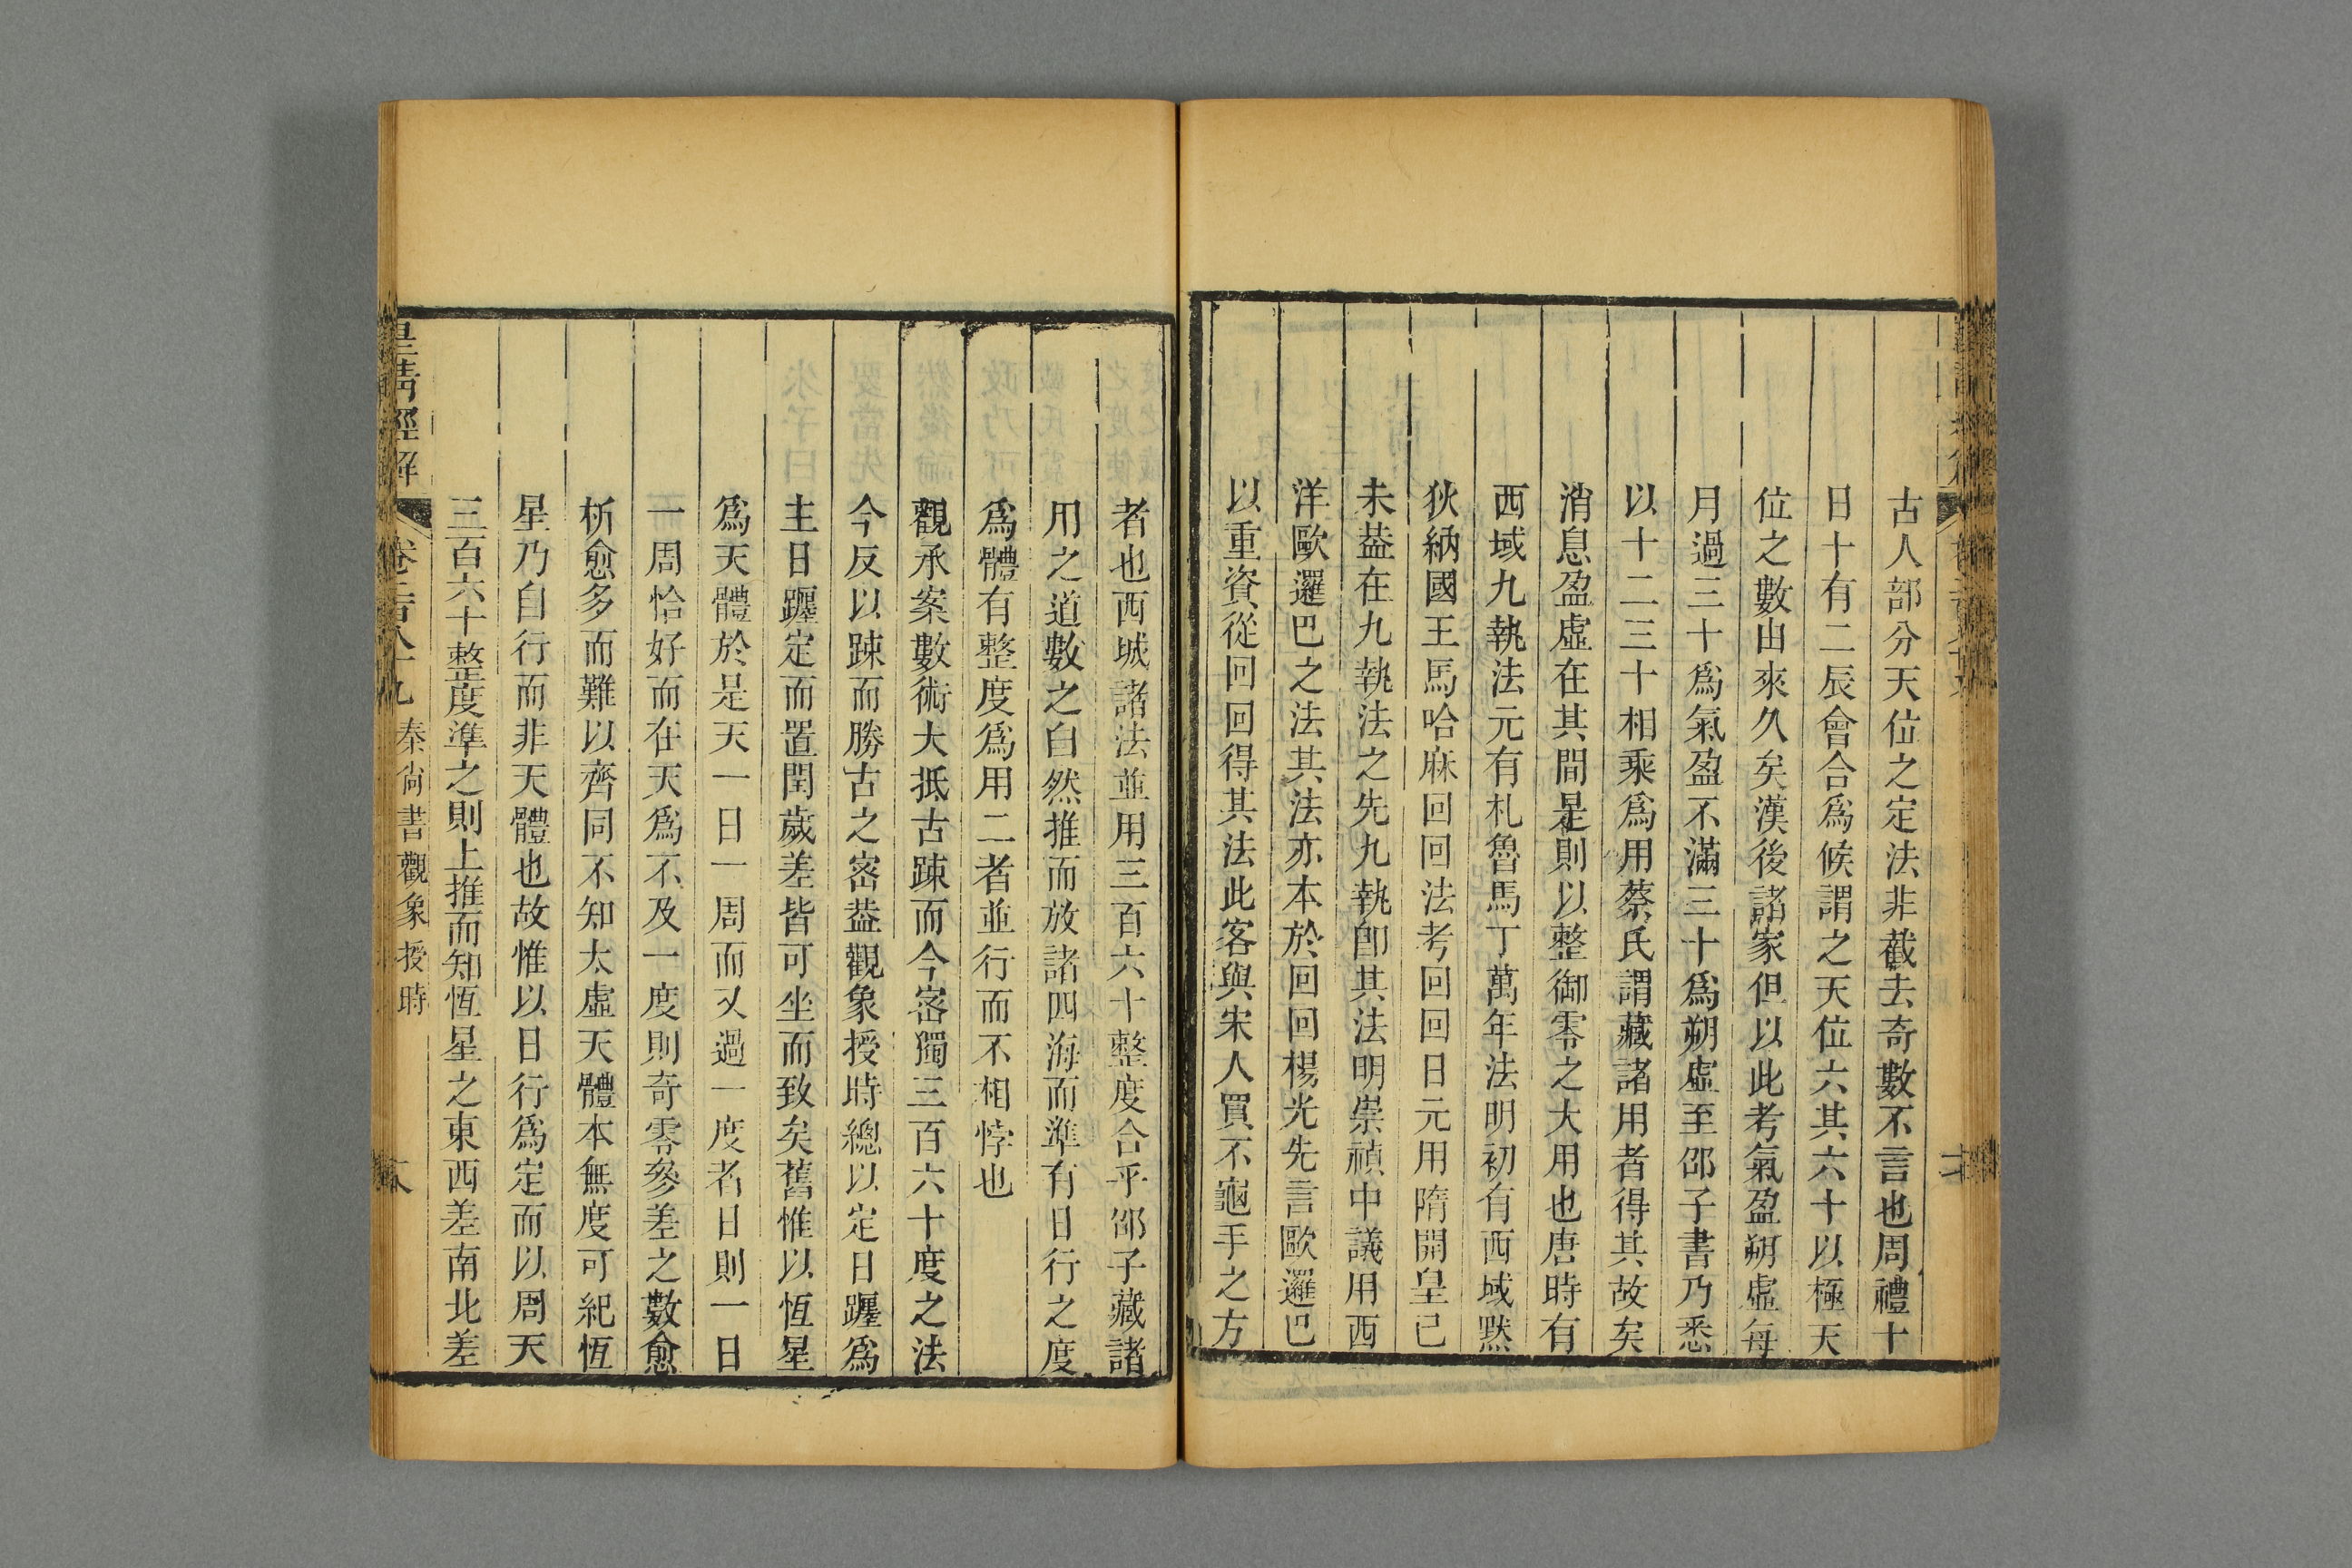 古人部分天位之定法非截去奇數不言也周禮十
日十有二辰會合爲候謂之天位六其六十以極天
位之數由來久矣漢後諸家但以此考氣盈朔虛每
月過三十爲氣盈不滿三十爲朔虛至邵子書乃悉
以十二三十相乘爲用蔡氏謂藏諸用者得其故矣
消息盈虛在其間是則以整御零之大用也唐時有
西域九執法元有札魯馬丁萬年法明初有西域黙
狄納國王馬哈麻回回法考回回日元用隋開皇已
未葢在九執法之先九執卽其法明崇禎中議用西
洋歐邏巴之法其法亦本於回回楊光先言歐邏巴
以重資從回回得其法此客與宋人買不龜手之方
者也西域諸法並用三百六十整度合乎邵子藏諸
用之道數之自然推而放諸四海而準有日行之度
爲體有整度爲用二者並行而不相悖也
觀承案數術大抵古踈而今宻獨三百六十度之法
今反以踈而勝古之宻葢觀象授時總以定日躔爲
主日躔定而置閏歲差皆可坐而致矣舊惟以恆星
爲天體於是天一日一周而又過一度者日則一日
一周恰好而在天爲不及一度則奇零參差之數愈
析愈多而難以齊同不知太虛天體本無度可紀恆
星乃自行而非天體也故惟以日行爲定而以周天
三百六十整度準之則上推而知恆星之東西差南北差
皇清經解 卷二百八十九 秦尚書觀象授時